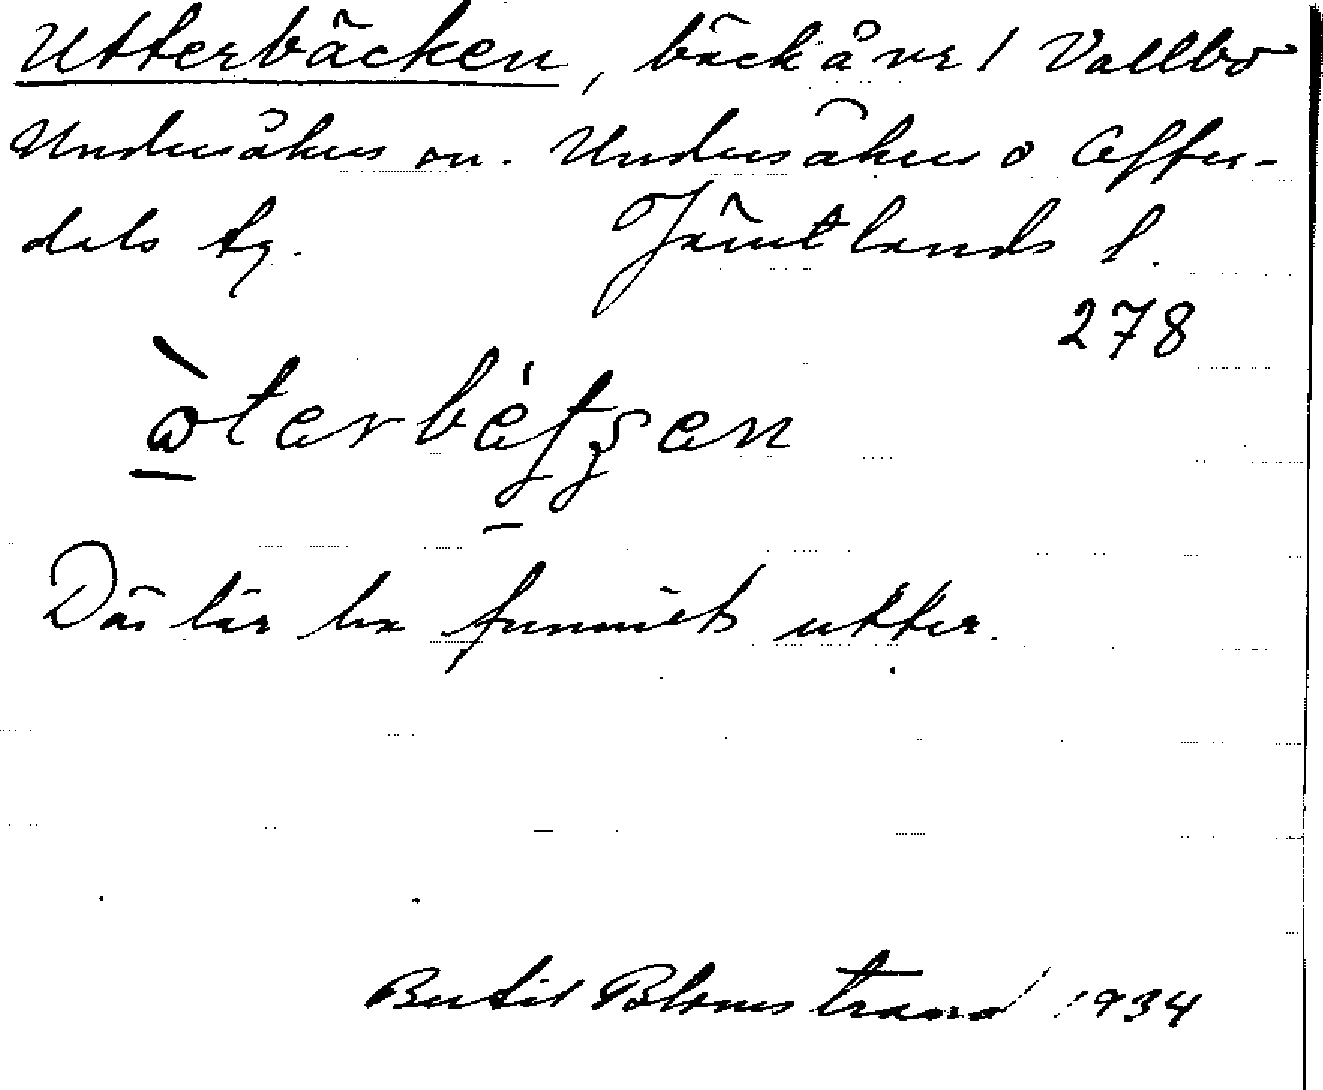 Utterbäcken, bäck å nr 1 Vallbo
Undersåkers sn. Undersåkers o Offer-
dals tg. Jämtlands l.
278
Där lär ha funnits utter.
Bertil Blomstrand 1934